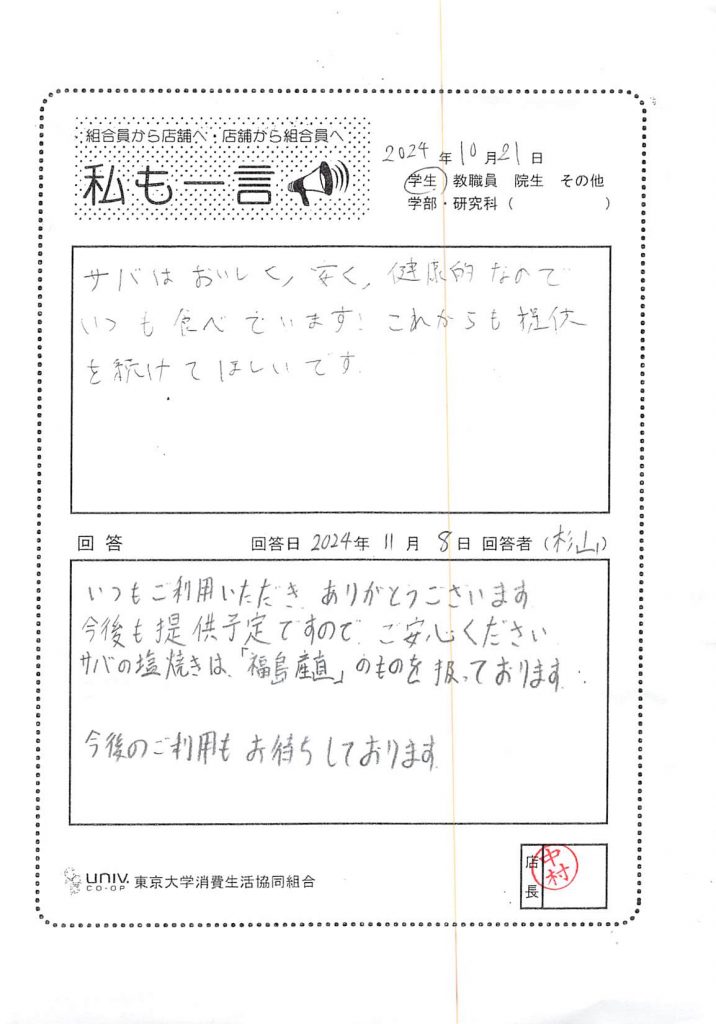 組合員から店舗へ・店舗から組合員へ
私も一言
2024年10月21日
学生 教職員 院生 その他
学部・研究科( )
サバはおいしく、安く、健康的なので
いつも食べています! これからも提供
を続けてほしいです。
回答 回答日 2024年 11月 8日 回答者(杉山)
いつもご利用いただき ありがとうございます
今後も提供予定ですので ご安心ください
サバの塩焼きは、「福島産直」のものを扱っております。
今後のご利用も お待ちしております。
UNIV. CO-OP 東京大学消費生活協同組合
店長 中村